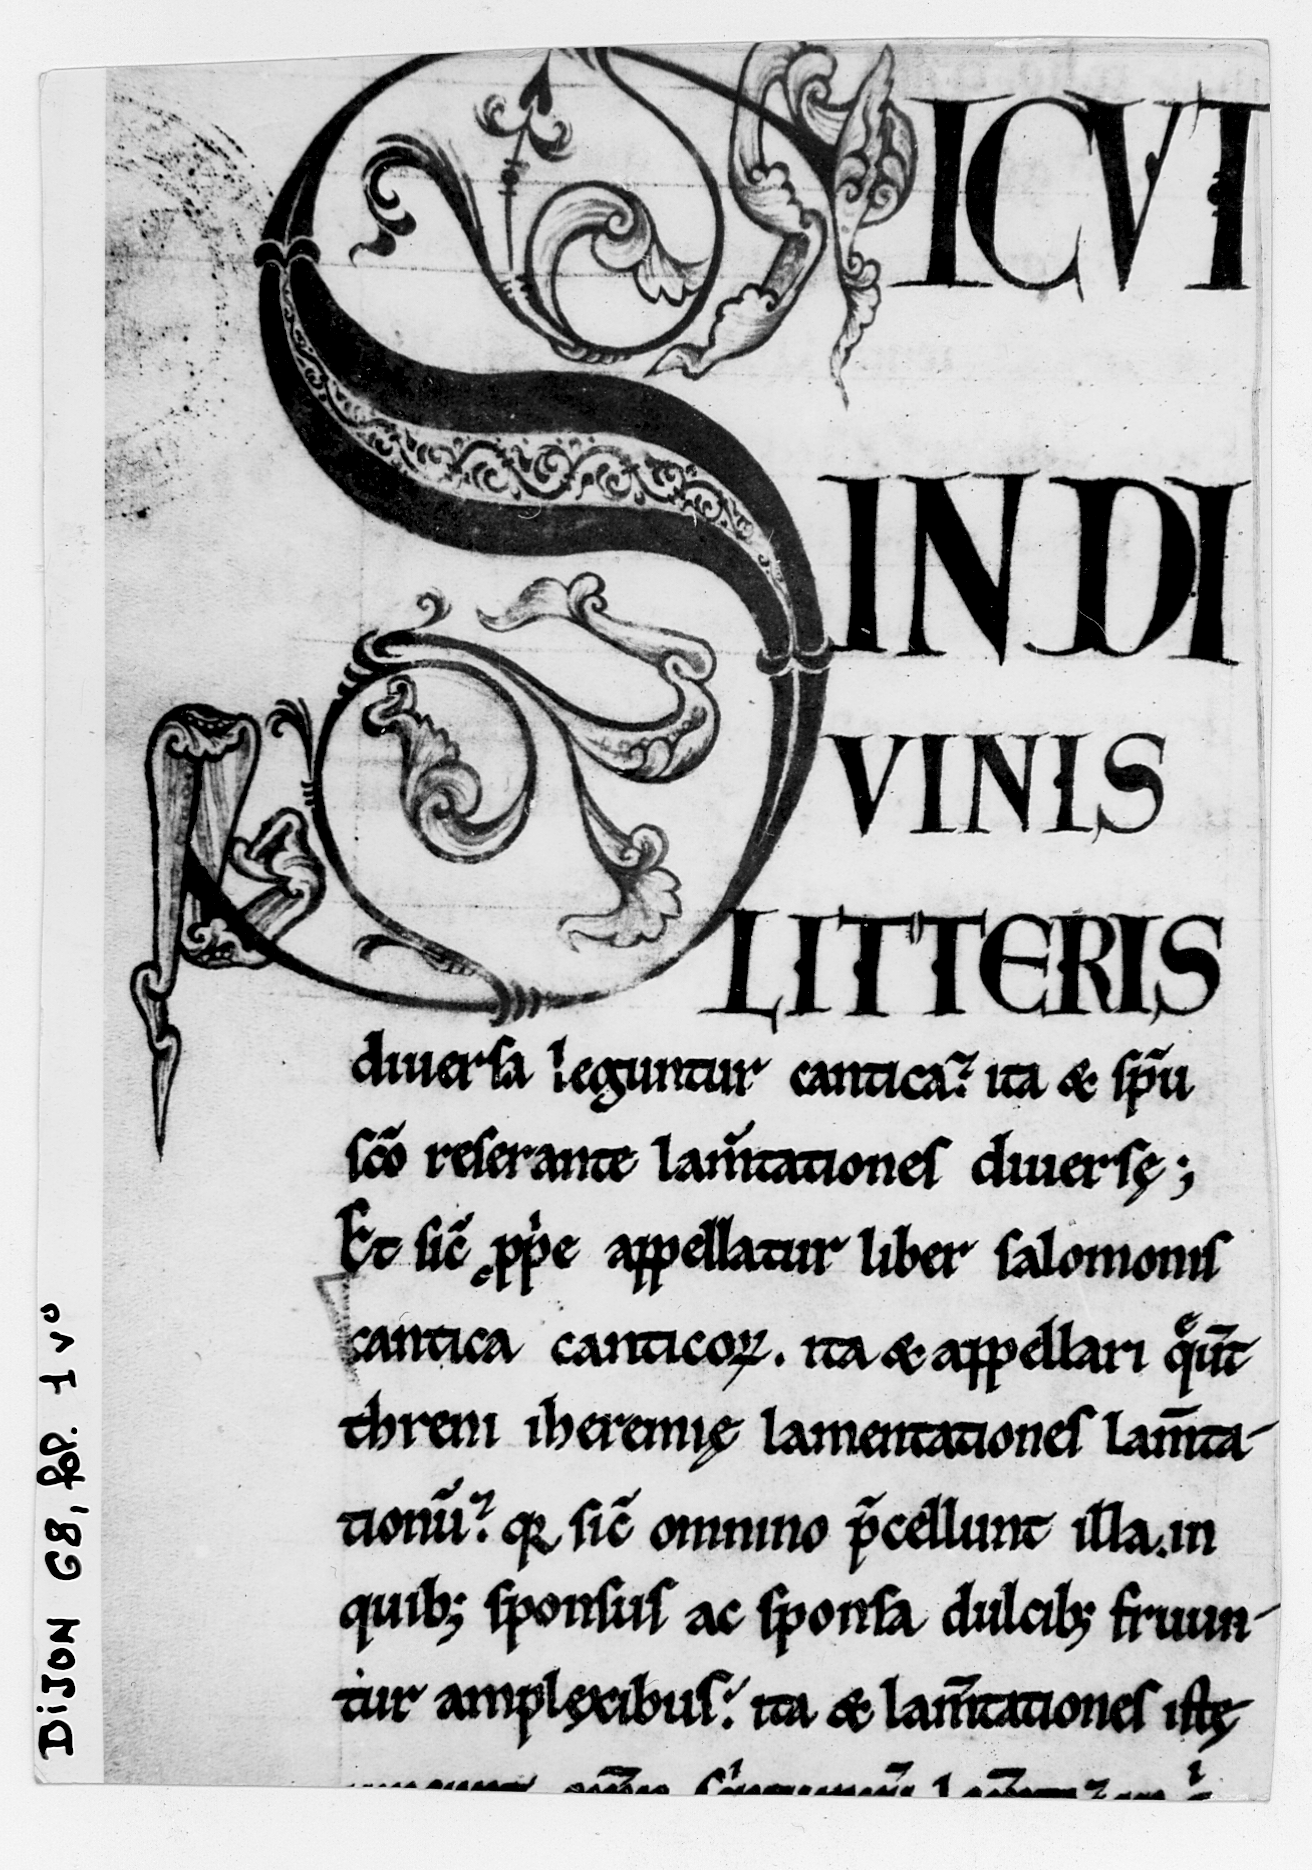 SICVT
IN DI
VINIS
LITTERIS
diuersa leguntur cantica. ita & sp̄u
sc̄o reserante lam̄tationes diuersę;
Et sic̄ ꝓpͥe appellatur liber salomonis
cantica canticoꝝ. ita & appellari q̊ūt
threni iheremię lamentationes lam̄ta-
tionū. sic̄ omnino p̄cellunt illa. in
quib; sponsus ac sponsa dulcib; fruun-
tur amplęxibus. ita & lam̄tationes istę
DIJON 68, fol. 1 vº